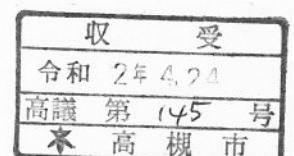 収 受
令和 2年 4.24
高議 第 145 号
高 槻 市